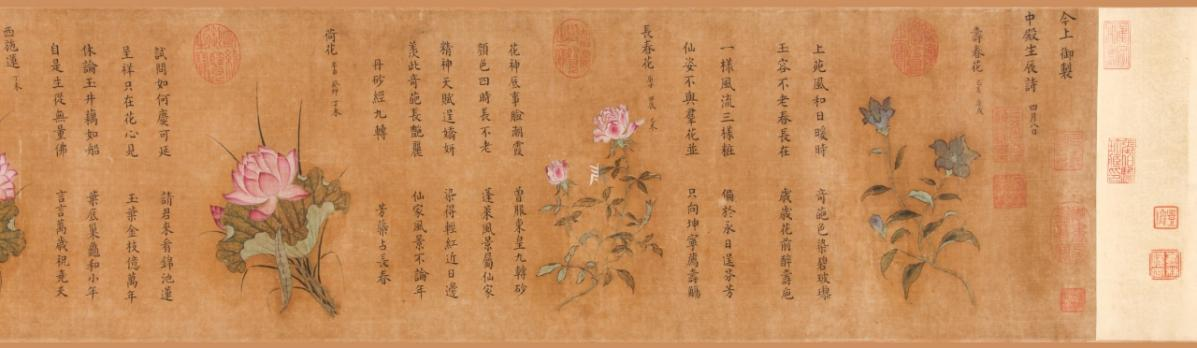 今上御製
中殿生辰詩 四月八日
壽春花
上苑風和日暖時 奇葩色染碧玻瓈
玉容不老春長在 歲歲花前醉壽巵
一樣風流三樣粧 偏於永日逞芬芳
仙姿不與羣花並 只向坤寧薦壽觴
長春花
花神底事臉潮霞 曾服東皇九轉砂
顏色四時長不老 蓬萊風景屬仙家
精神天賦逞嬌妍 染得輕紅近日邊
羨此奇葩長艷麗 仙家風景不論年
丹砂經九轉 芳蘂占長春
荷花
試問如何慶可延 請君來看錦池蓮
呈祥只在花心見 玉葉金枝億萬年
休論玉井藕如船 葉底巢龜和小年
自是生從無量佛 言言萬歲祝堯天
西施蓮